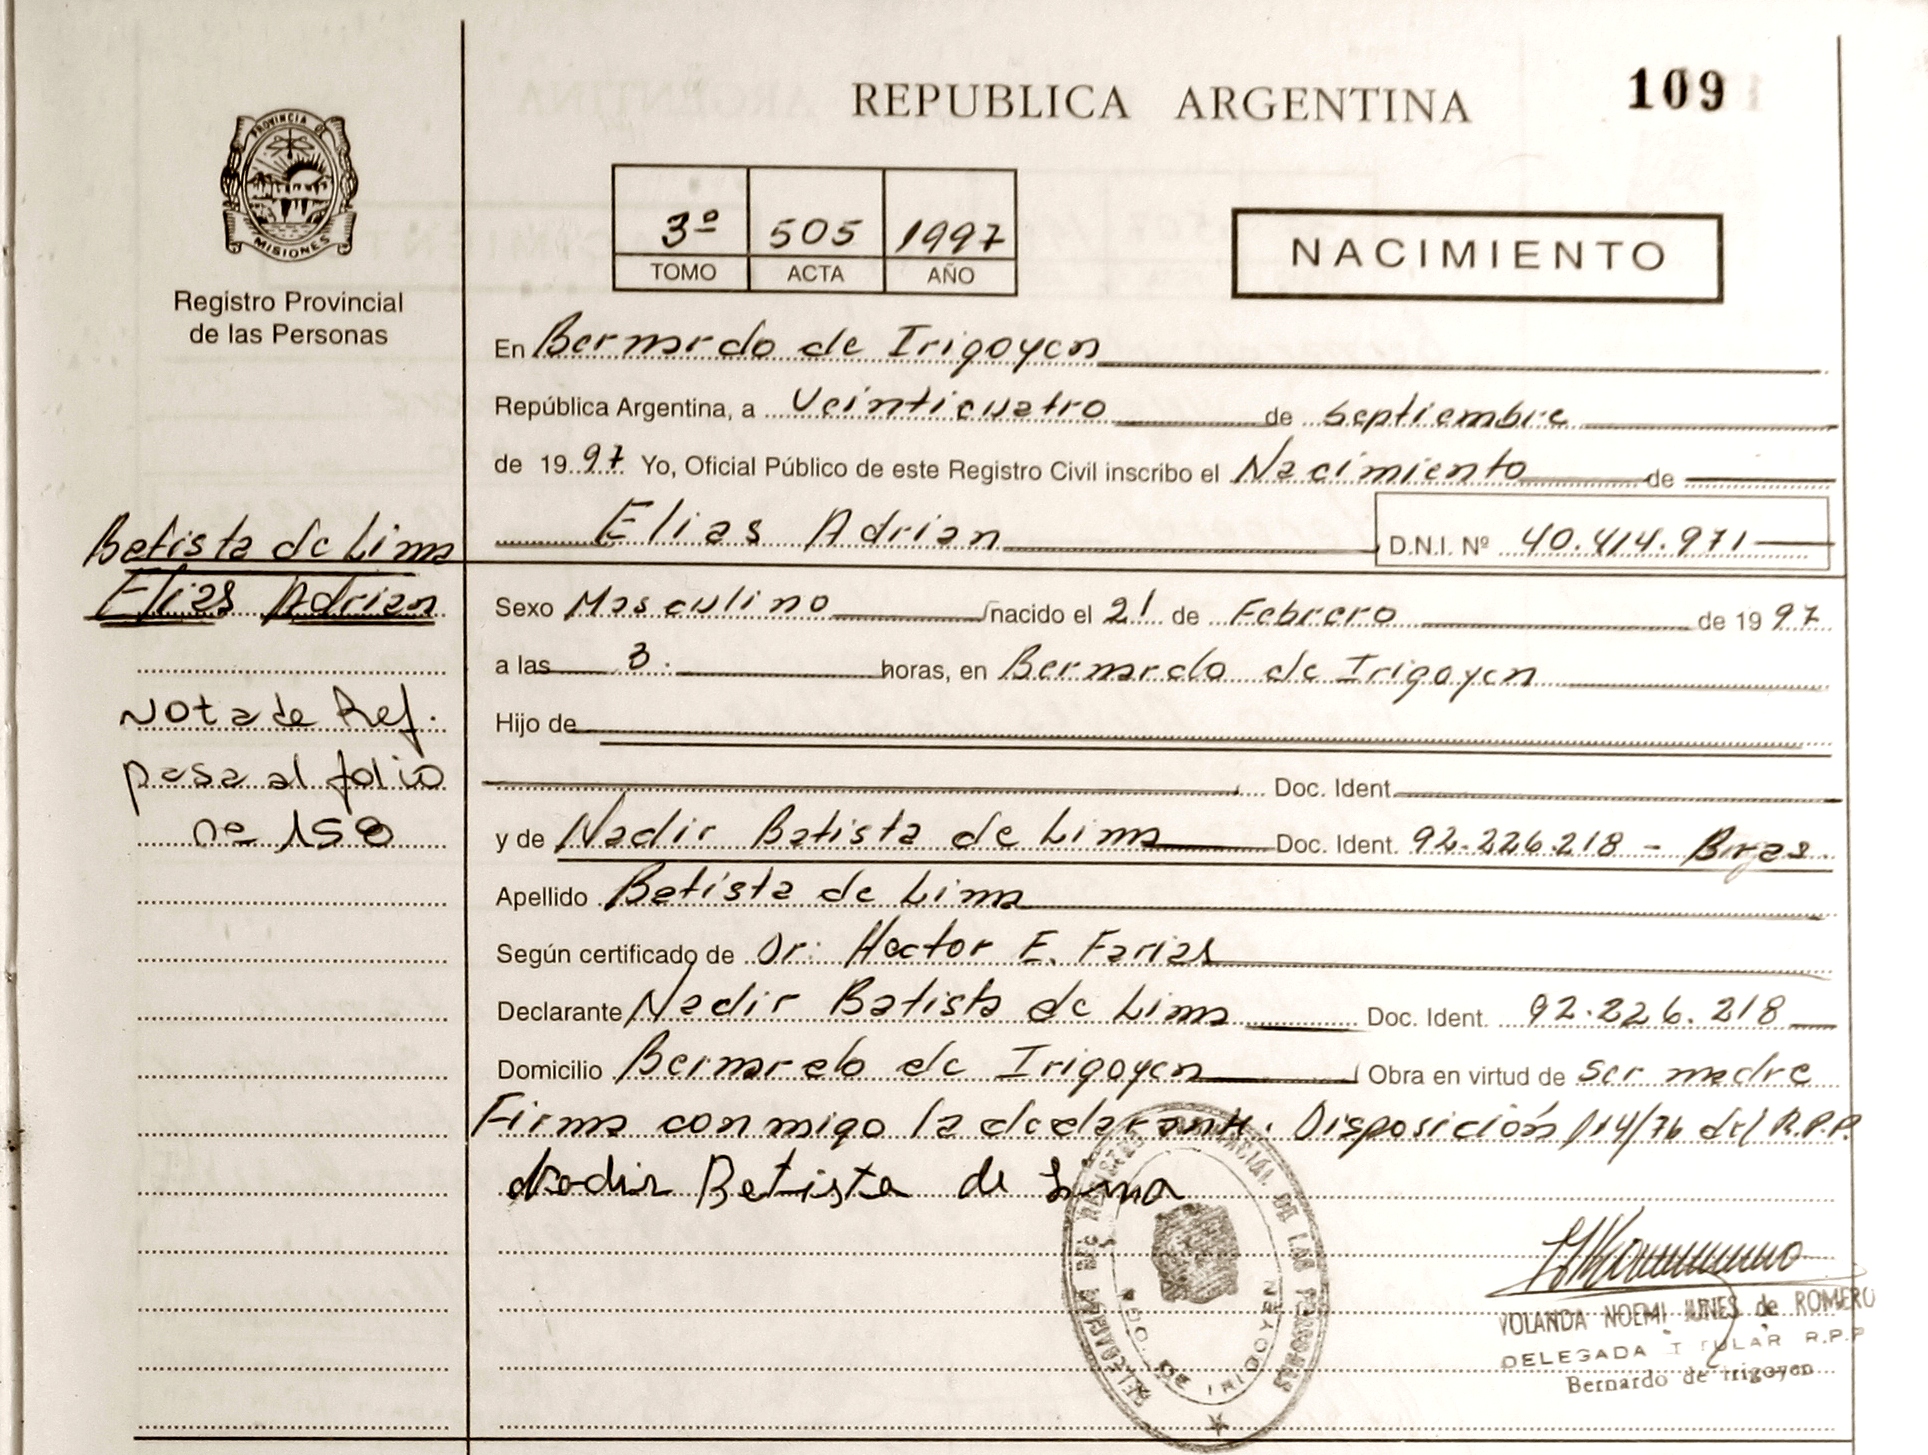 REPUBLICA ARGENTINA
109
PROVINCIA DE
MISIONES
Registro Provincial
de las Personas
3º 505 1997
TOMO ACTA AÑO
NACIMIENTO
En Bernardo de Irigoyen
República Argentina, a Veinticuatro de Septiembre
de 1997 Yo, Oficial Público de este Registro Civil inscribo el Nacimiento de
Elias Adrian D.N.I. Nº 40.414.971
Batista de Lima
Elias Adrian
Sexo Masculino nacido el 21 de Febrero de 1997
a las 3. horas, en Bernardo de Irigoyen
Nota de Ref.
pasa al folio
na 158
Hijo de
Doc. Ident.
y de Nadir Batista de Lima Doc. Ident. 92.226.218 - Bras.
Apellido Batista de Lima
Según certificado de Dr: Hector E. Farias
Declarante Nadir Batista de Lima Doc. Ident. 92.226.218
Domicilio Bernardo de Irigoyen Obra en virtud de ser madre
Firma conmigo la declarante. Disposición 114/76 del R.P.P.
Nadir Batista de Lima
DE LAS PERSONAS
BDO. DE IRIGOYEN
YOLANDA NOEMI de ROMERO
DELEGADA TITULAR R.P.P
Bernardo de Irigoyen